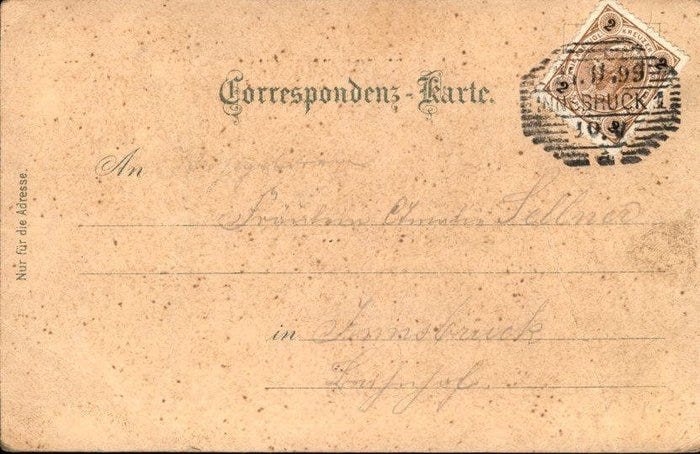 2 KREUZER 2
2 2
11.99
INNSBRUCK 1
10.
a
Correspondenz-Karte.
An
Fräulein Amalie Sellner
in Innsbruck
Bahnhof
Nur für die Adresse.